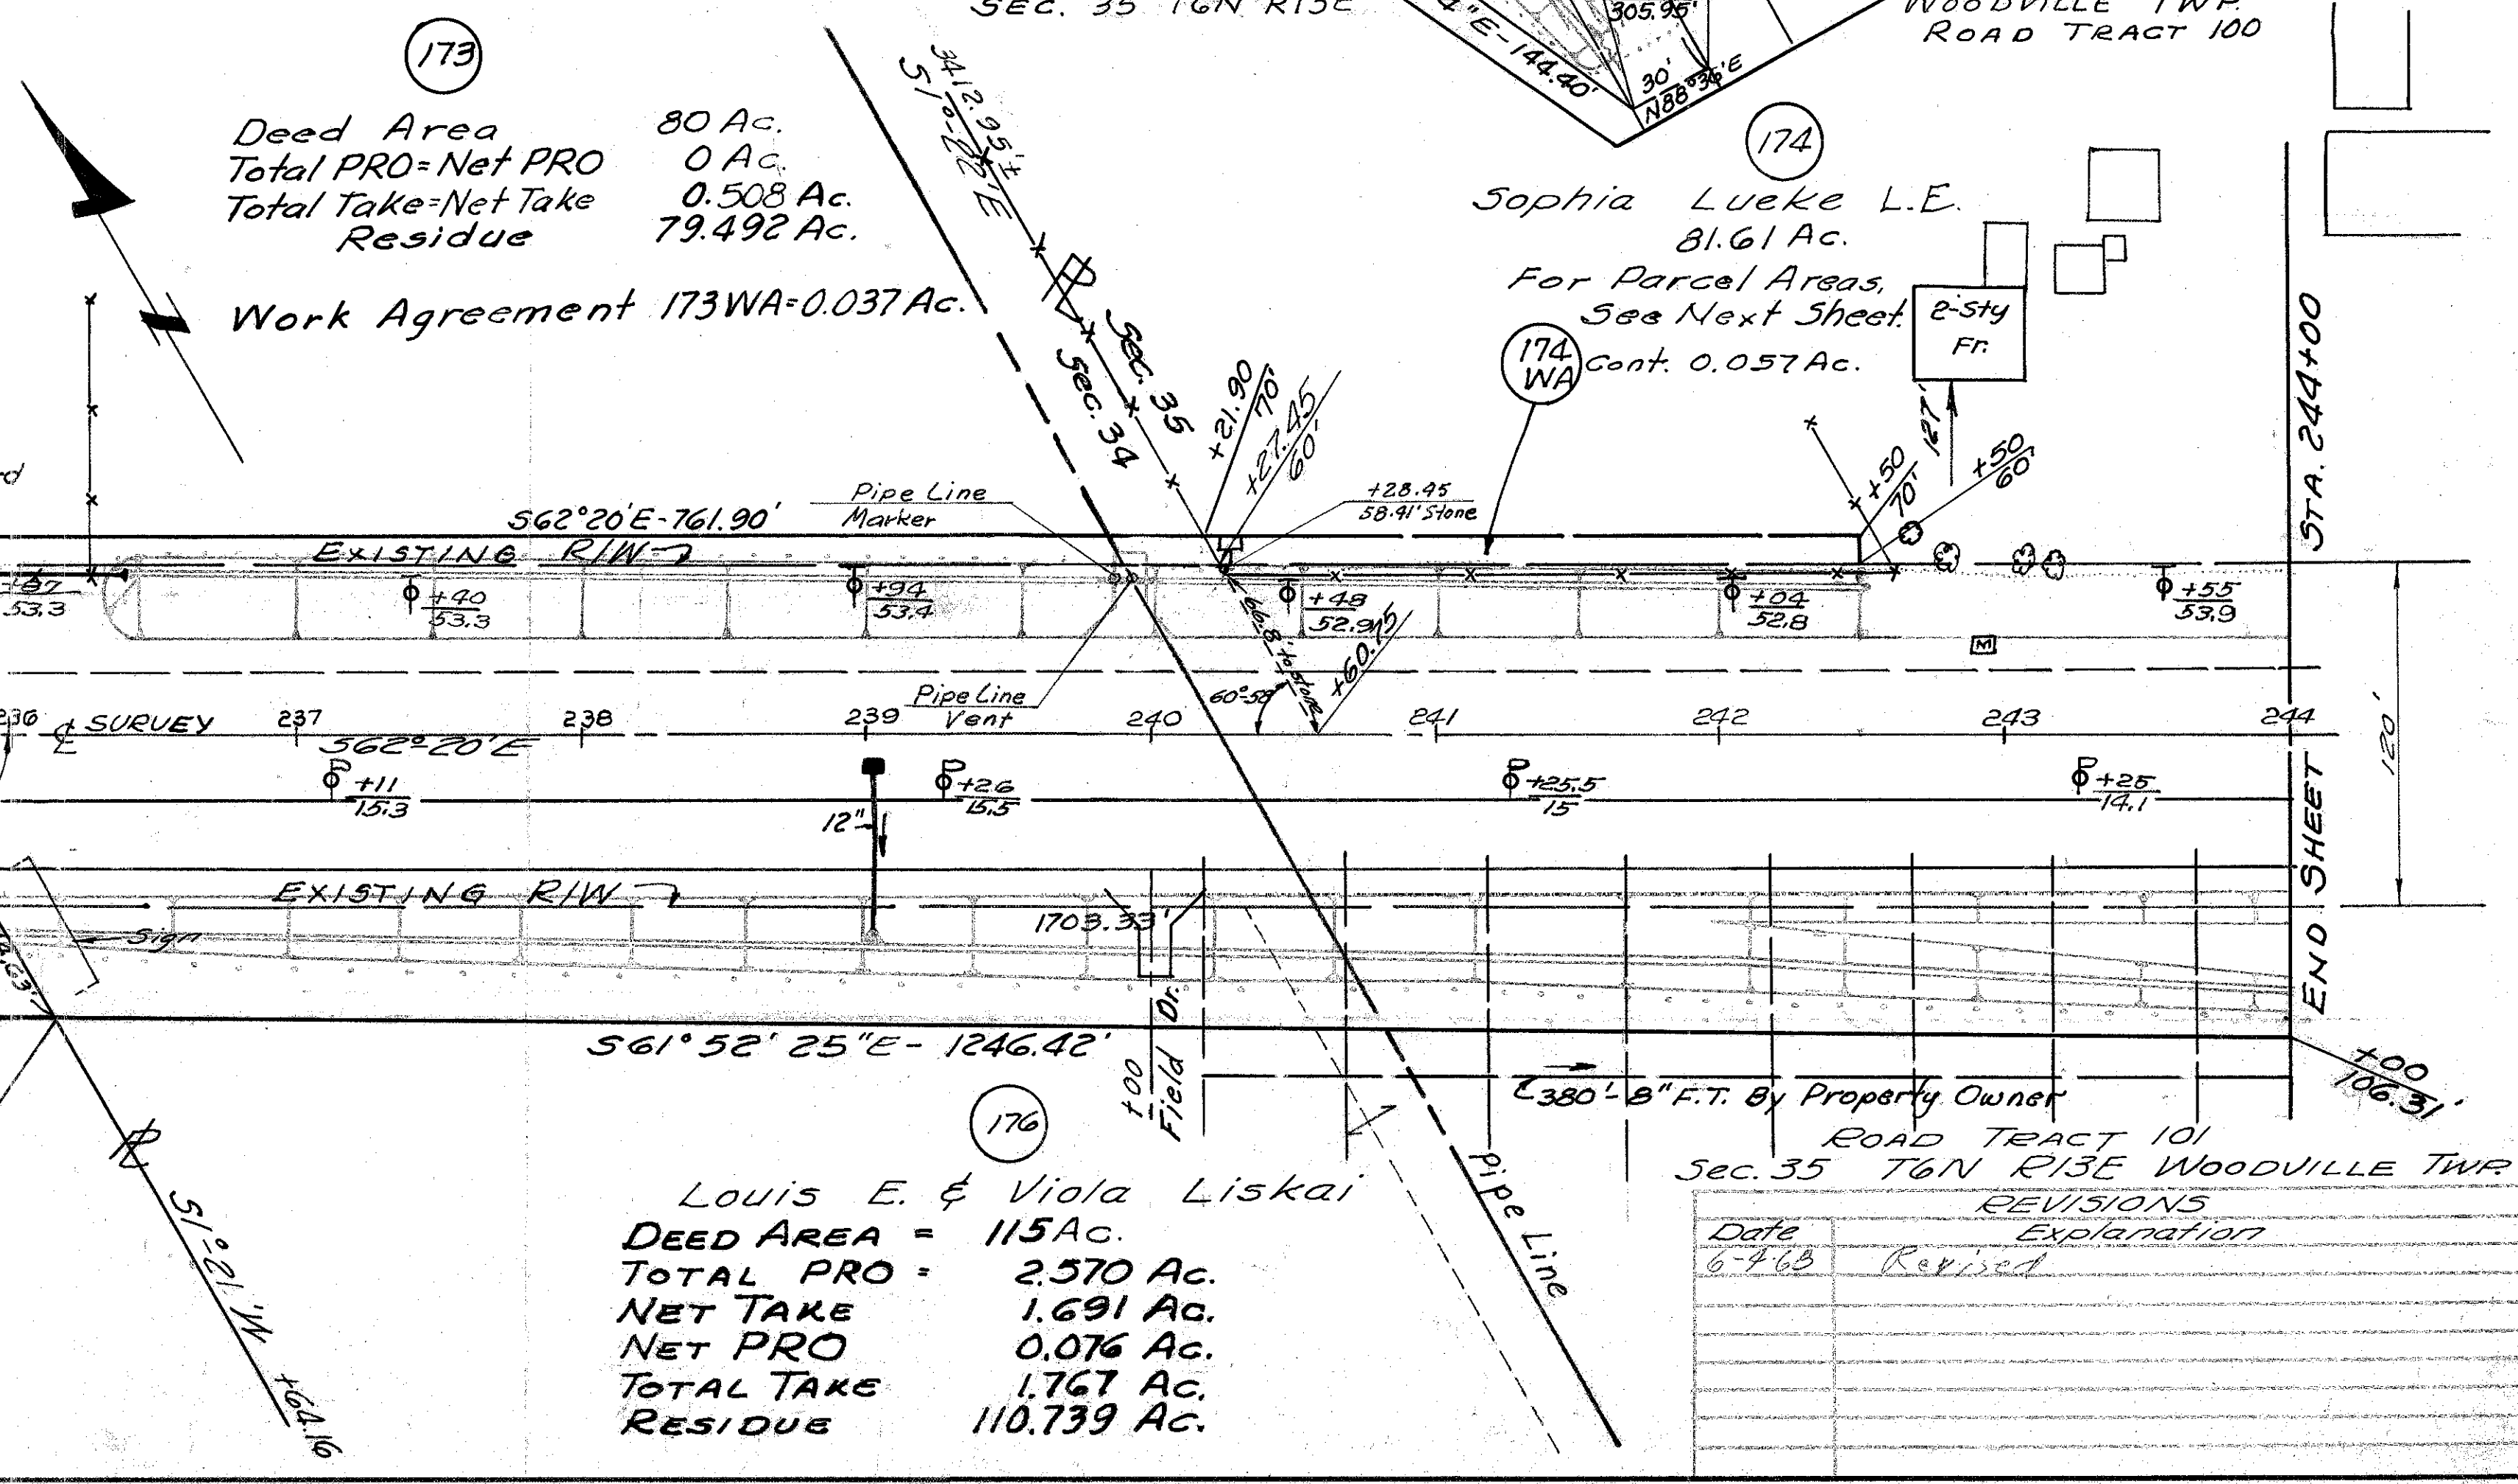 SEC. 35 T6N R13E
4"E-144.40'
305.95'
30'
N88°36'E
WOODVILLE TWP.
ROAD TRACT 100
173
Deed Area 80 Ac.
Total PRO=Net PRO 0 Ac.
Total Take=Net Take 0.508 Ac.
Residue 79.492 Ac.
Work Agreement 173WA=0.037 Ac.
3412.95'±
S1°-22'E
174
Sophia Lueke L.E.
81.61 Ac.
For Parcel Areas,
See Next Sheet.
174 WA
Cont. 0.057 Ac.
2-Sty
Fr.
127'
STA. 244+00
Sec. 35
Sec. 34
+21.90
70'
+27.45
60'
+28.45
58.41' Stone
+50
70'
+50
60'
S62°20'E-761.90'
Pipe Line
Marker
EXISTING R/W
53.3
+40
53.3
+94
53.4
+48
52.9
+04
52.8
+55
53.9
66.8' to stone
+60.75
60°-58'
M
Pipe Line
Vent
236 237 238 239 240 241 242 243 244
℄ SURVEY
S62°-20'E
120'
+11
15.3
+26
15.5
+25.5
15
+25
14.1
12"
END SHEET
EXISTING R/W
Sign
1703.33'
S61°52'25"E- 1246.42'
+00
Field Dr.
380'-8" F.T. By Property Owner
+00
106.31'
176
Louis E. & Viola Liskai
DEED AREA = 115 Ac.
TOTAL PRO = 2.570 Ac.
NET TAKE 1.691 Ac.
NET PRO 0.076 Ac.
TOTAL TAKE 1.767 Ac.
RESIDUE 110.739 Ac.
S1°-21'W
+64.16
Pipe Line
ROAD TRACT 101
Sec. 35 T6N R13E WOODVILLE TWP.
REVISIONS
Date Explanation
Revised